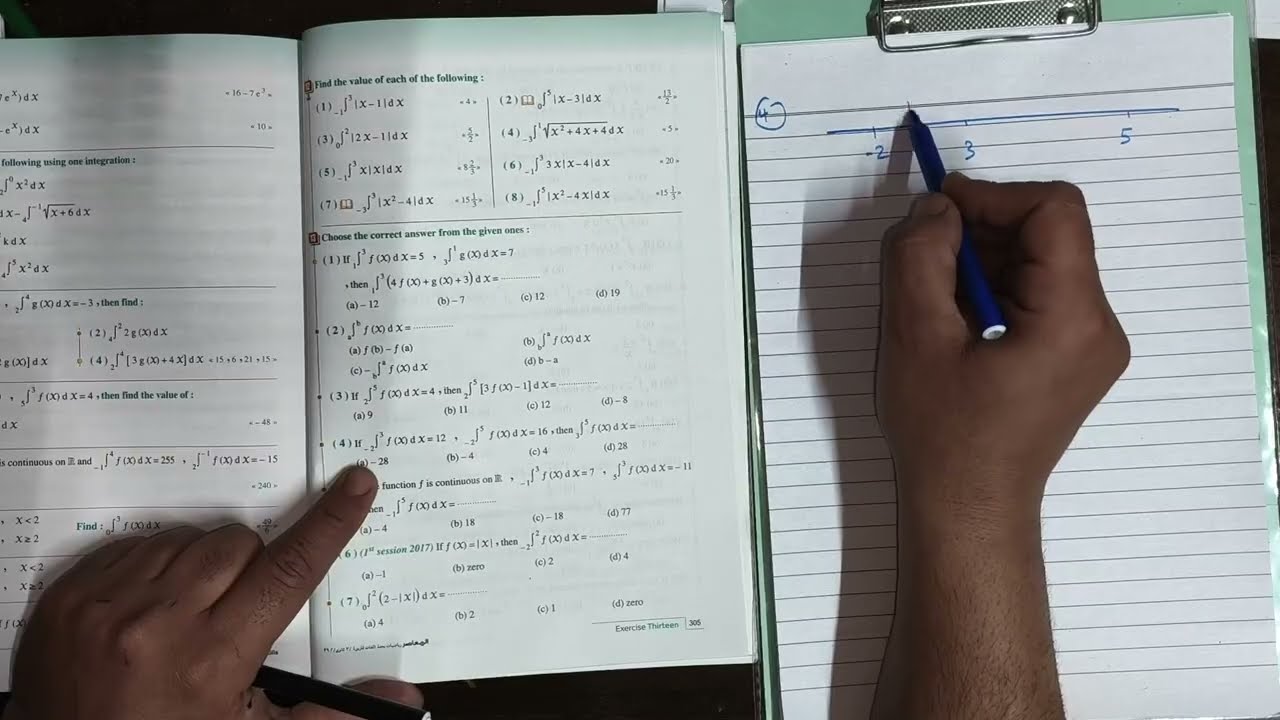 7 e^x) dX « 16 – 7 e³ »
– e^x) dX « 10 »
following using one integration :
∫^0 x² dX
dX – ₄∫^–1 √(x+6) dX
k dX
₄∫^5 x² dX
, ₂∫^4 g (X) dX = – 3 , then find :
(2) ₄∫^2 2 g (X) dX
g (X)] dX (4) ₂∫^4 [3 g (X) + 4 X] dX « 15 , 6 , 21 , 15 »
, ₅∫^3 f (X) dX = 4 , then find the value of :
dX « – 48 »
is continuous on ℝ and ₋₁∫^4 f (X) dX = 255 , ₂∫^–1 f (X) dX = – 15
« 240 »
, X < 2 Find : ₀∫^3 f (X) dX « 49/6 »
, X ≥ 2
, X < 2
, X ≥ 2
Find the value of each of the following :
(1) ₋₁∫^3 |X – 1| dX « 4 » (2) ₀∫^5 |X – 3| dX « 13/2 »
(3) ₀∫^2 |2 X – 1| dX « 5/2 » (4) ₋₃∫^1 √(X² + 4 X + 4) dX « 5 »
(5) ₋₁∫^3 X |X| dX « 8 2/3 » (6) ₋₁∫^3 3 X |X – 4| dX « 20 »
(7) ₋₃∫^3 |X² – 4| dX « 15 1/3 » (8) ₋₁∫^5 |X² – 4 X| dX « 15 1/3 »
Choose the correct answer from the given ones :
(1) If ₁∫^3 f (X) dX = 5 , ₃∫^1 g (X) dX = 7
, then ₁∫^3 (4 f (X) + g (X) + 3) dX = ..............
(a) – 12 (b) – 7 (c) 12 (d) 19
(2) ₐ∫^b f (X) dX = ..............
(a) f (b) – f (a) (b) ᵦ∫^a f (X) dX
(c) – ᵦ∫^a f (X) dX (d) b – a
(3) If ₂∫^5 f (X) dX = 4 , then ₂∫^5 [3 f (X) – 1] dX = ..............
(a) 9 (b) 11 (c) 12 (d) – 8
(4) If ₋₂∫^3 f (X) dX = 12 , ₋₂∫^5 f (X) dX = 16 , then ₃∫^5 f (X) dX = ..............
(a) – 28 (b) – 4 (c) 4 (d) 28
function f is continuous on ℝ , ₋₁∫^3 f (X) dX = 7 , ₅∫^3 f (X) dX = – 11
₋₁∫^5 f (X) dX = ..............
(a) – 4 (b) 18 (c) – 18 (d) 77
6) (1st session 2017) If f (X) = |X| , then ₋₂∫^2 f (X) dX = ..............
(a) –1 (b) zero (c) 2 (d) 4
(7) ₀∫^2 (2 – |X|) dX = ..............
(a) 4 (b) 2 (c) 1 (d) zero
Exercise Thirteen 305
4
-2 3 5